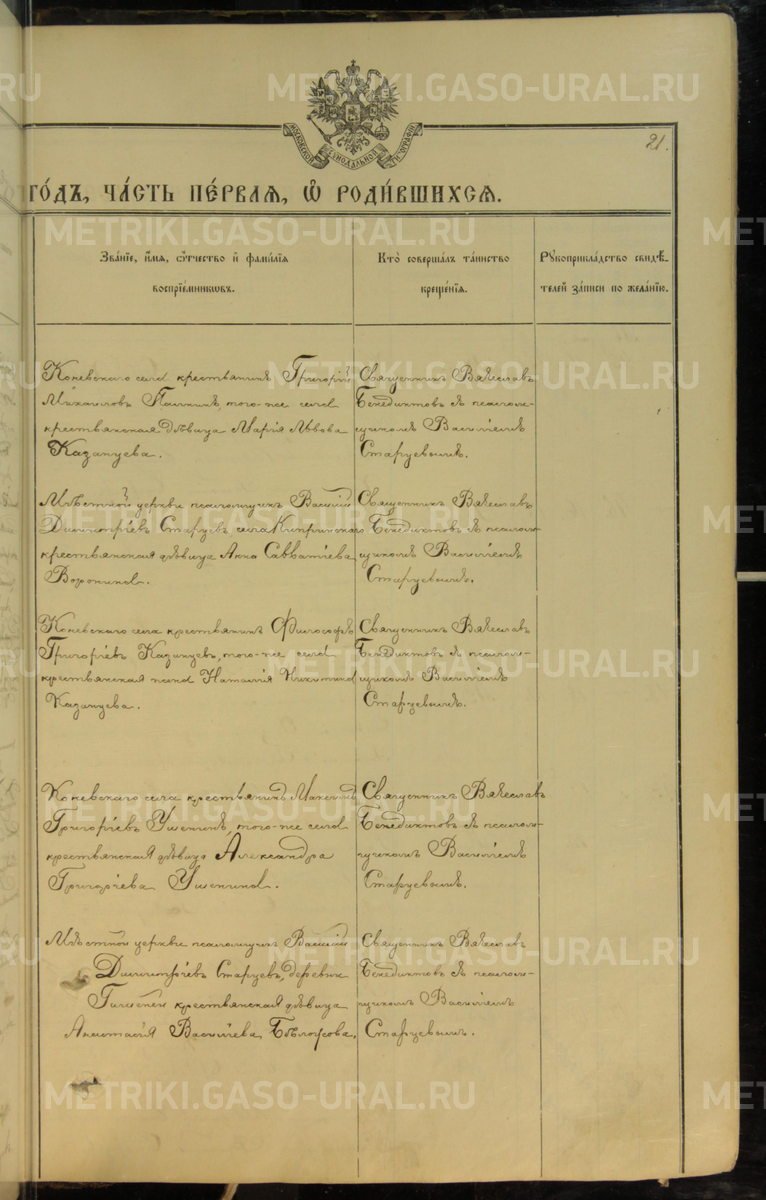 METRIKI.GASO-URAL.RU
МОСКОВСКОЙ СѴНОДАЛЬНОЙ ТИПОГРАФІИ
21.
ГО́ДЪ, ЧА́СТЬ ПЕ́РВАѦ, Ѡ РОДИ́ВШИХСѦ.
Зва́нїе, и́мѧ, ѻ҆́тчество и҆ фами́лїѧ
воспрїе́мникѡвъ.
Кто̀ соверша́лъ та́инство
креще́нїѧ.
Рꙋкоприкла́дство свидѣ́-
телей за́писи по жела́нїю.
Коневскаго села крестьянинъ Григорій
Михаиловъ Палкинъ, того-же села
крестьянская дѣвица Марія Львова
Казанцева.
Священникъ Вячеславъ
Бенедиктовъ съ псалом-
щикомъ Василіемъ
Старцевымъ.
Мѣстной церкви псаломщикъ Василій
Димитріевъ Старцевъ, села Кипринскаго
крестьянская дѣвица Анна Савватіева
Воронина.
Священникъ Вячеславъ
Бенедиктовъ съ псалом-
щикомъ Василіемъ
Старцевымъ.
Коневскаго села крестьянинъ Философъ
Григоріевъ Казанцевъ, того-же села
крестьянская жена Наталія Никитина
Казанцева.
Священникъ Вячеславъ
Бенедиктовъ съ псалом-
щикомъ Василіемъ
Старцевымъ.
Коневскаго села крестьянинъ
Григоріевъ Ушенинъ, того-же села
крестьянская дѣвица Александра
Григоріева Ушенина.
Священникъ Вячеславъ
Бенедиктовъ съ псалом-
щикомъ Василіемъ
Старцевымъ.
Мѣстной церкви псаломщикъ Василій
Димитріевъ Старцевъ, деревни
крестьянская дѣвица
Анастасія Василіева Бѣлоусова.
Священникъ Вячеславъ
Бенедиктовъ съ псалом-
щикомъ Василіемъ
Старцевымъ.